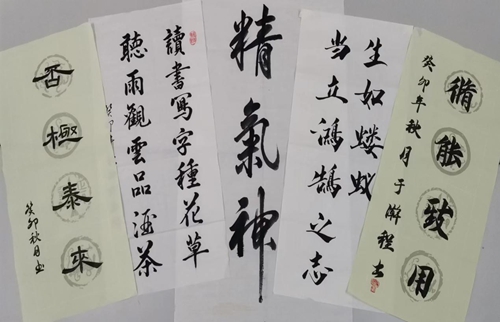 能致用
癸卯年秋月于
生如蝼蚁
当立鴻鵠之志
精氣神
讀書寫字種花草
聽雨觀雲品酒茶
否極泰來
癸卯秋月